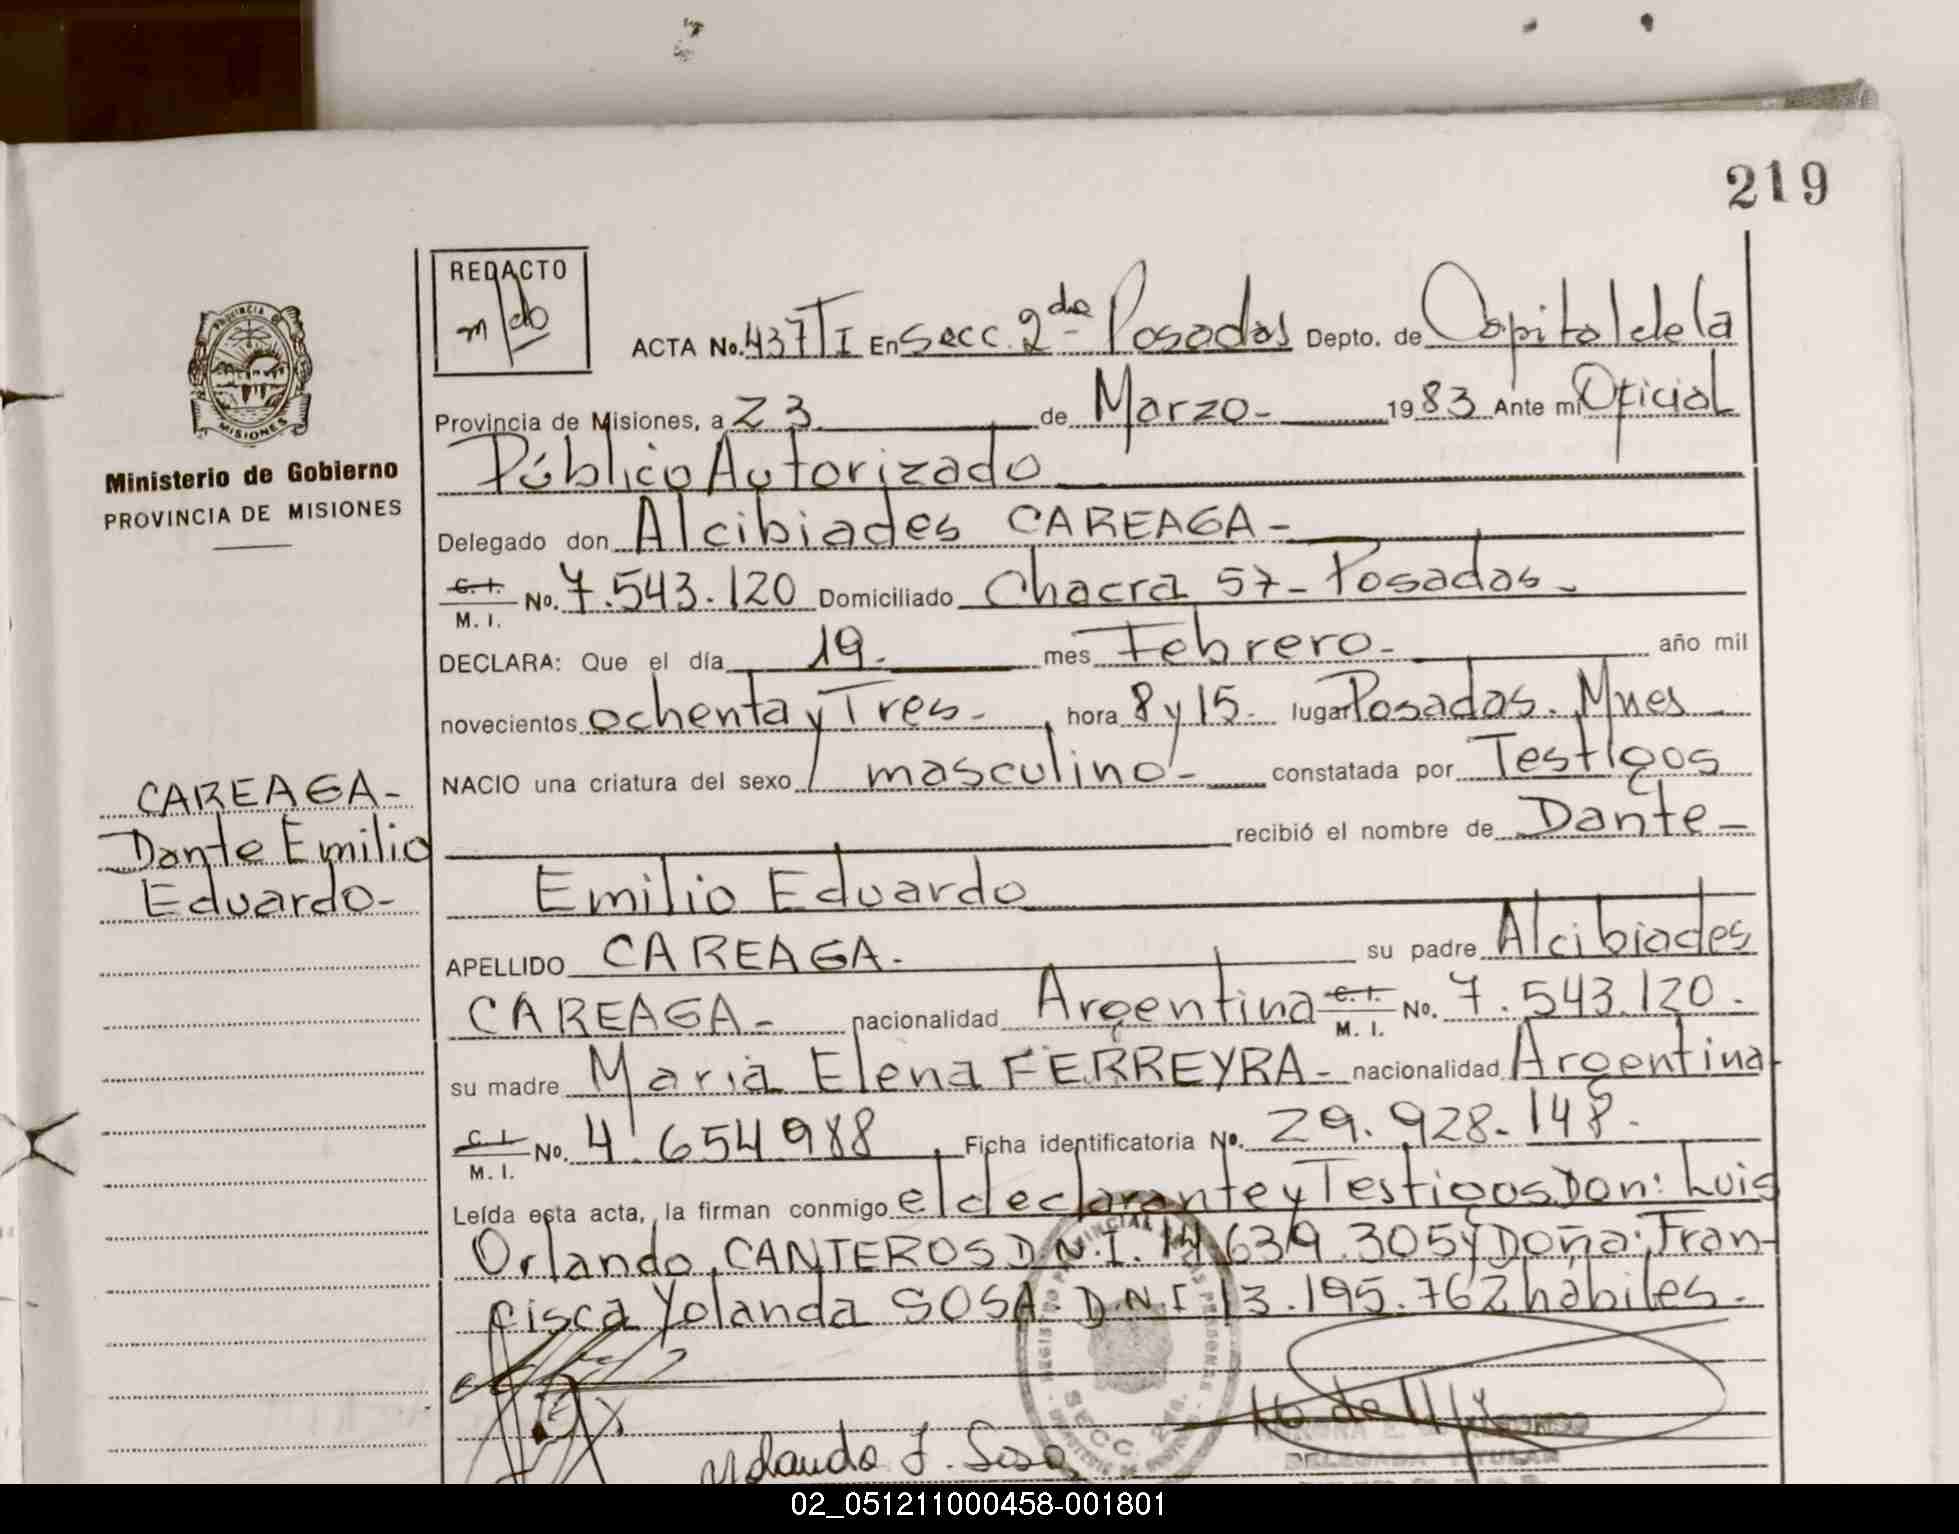 219
REDACTO
PROVINCIA DE
MISIONES
Ministerio de Gobierno
PROVINCIA DE MISIONES
ACTA No. 437 T I En Secc. 2da Posadas Depto. de Capital de la
Provincia de Misiones, a 23 de Marzo- 1983 Ante mi Oficial
Público Autorizado
Delegado don Alcibiades CAREAGA-
C. I.
M. I. No. 7.543.120 Domiciliado Chacra 57- Posadas-
DECLARA: Que el día 19- mes Febrero- año mil
novecientos ochenta y Tres- hora 8 y 15- lugar Posadas. Mnes
NACIO una criatura del sexo masculino- constatada por Testigos
recibió el nombre de Dante-
Emilio Eduardo
CAREAGA-
Dante Emilio
Eduardo-
APELLIDO CAREAGA- su padre Alcibiades
CAREAGA- nacionalidad Argentina C. I. M. I. No. 7.543.120-
su madre Maria Elena FERREYRA- nacionalidad Argentina
C. I.
M. I. No. 4.654988 Ficha identificatoria No. 29.928-148-
Leída esta acta, la firman conmigo el declarante y Testigos Don: Luis
Orlando CANTEROS D.N.I. 14 639.305 y Doña: Fran-
cisca Yolanda SOSA D.N.I 13.195.762 habiles-
SECC. 2da.
Yolanda F. Sosa
DELEGADA TITULAR
02_051211000458-001801